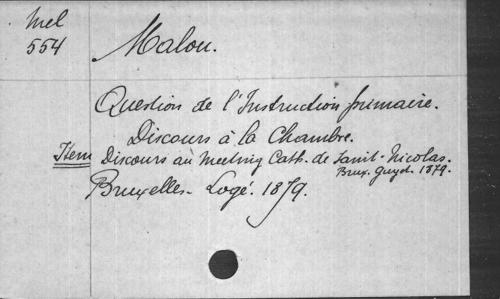 Mel
554
Malou.
Question de l'Instruction primaire.
Discours à la Chambre.
Item Discours au meeting Cath. de Saint-Nicolas.
Brux. Guyot. 1879.
Bruxelles - Logé. 1879.